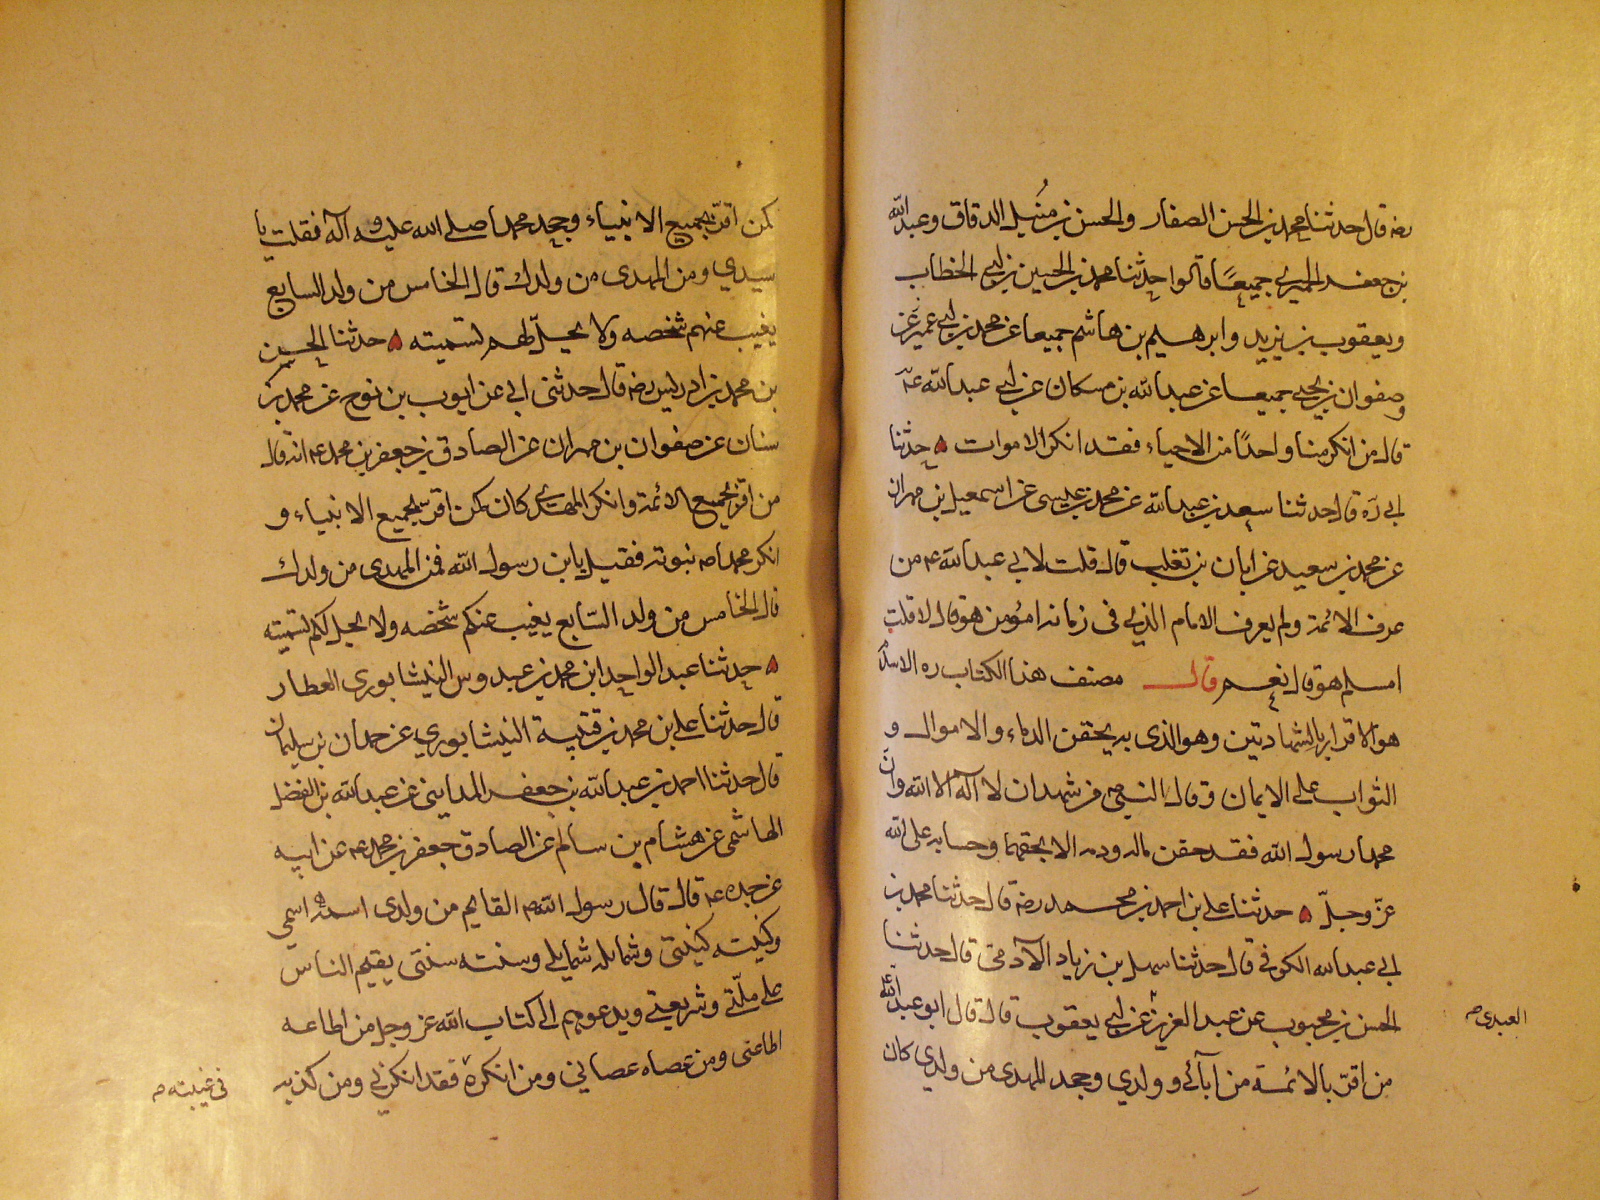 رضه قال حدثنا محمد بن الحسن الصفار والحسن بن متيل الدقاق وعبدالله
بن جعفر الحميري جميعًا قالوا حدثنا محمد بن الحسين بن ابي الخطاب
ويعقوب بن يزيد وابرهيم بن هاشم جميعا عن محمد بن ابي عمير عن
وصفوان بن يحيى جميعا عن عبدالله بن مسكان عن ابي عبدالله عه
قال من انكر منا واحدًا من الاحياء فقد انكر الاموات ه حدثنا
ابي ره قال حدثنا سعد بن عبدالله عن محمد بن عيسى عن اسمعيل بن مهران
عن محمد بن سعيد عن ابان بن تغلب قال قلت لابي عبدالله عه من
عرف الائمة ولم يعرف الامام الذي في زمانه امؤمن هو قال لا قلت
امسلم هو قال نعم قال مصنف هذا الكتاب ره الاسلام
هو الاقرار بالشهادتين وهو الذي به يحقن الدماء والاموال و
الثواب على الايمان وقال النبي ص من شهد ان لا آله الا الله وان
محمدا رسول الله فقد حقن ماله ودمه الا بحقهما وحسابه على الله
عزّ وجلّ ه حدثنا علي بن احمد بن محمد رضه قال حدثنا محمد بن
ابي عبدالله الكوفي قال حدثنا سهل بن زياد الآدمي قال حدثنا
الحسن بن محبوب عن عبد العزيز عن ابي يعقوب قال قال ابو عبدالله عه
العبدي ص
من اقرّ بالائمة من آبائي وولدي وجحد المهدي من ولدي كان
كمن اقرّ بجميع الانبياء وجحد محمدا صلى الله عليه وآله فقلت يا
سيدي ومن المهدي من ولدك قال الخامس من ولد السابع
يغيب عنهم شخصه ولا يحلّ لهم تسميته ه حدثنا الحسين
بن محمد بن ادريس رضه قال حدثني ابي عن ايوب بن نوح عن محمد بن
سنان عن صفوان بن مهران عن الصادق بن جعفر بن محمد عه انه قال
من اقرّ بجميع الائمة وانكر المهدي كان كمن اقر بجميع الانبياء و
انكر محمدا ص نبوته فقيل يا بن رسول الله فمن المهدي من ولدك
قال الخامس من ولد السّابع يغيب عنكم شخصه ولا يحل لكم تسميته
ه حدثنا عبد الواحد ابن محمد بن عبدوس النيشابوري العطار
قال حدثنا علي بن محمد بن قتيبة النيشابوري عن حمدان بن سليمان
قال حدثنا احمد بن عبدالله بن جعفر المدايني عن عبدالله بن الفضل
الهاشمي عن هشام بن سالم عن الصادق جعفر بن محمد عه عن ابيه
عن جده عه قال قال رسول الله ص القايم من ولدي اسمه اسمي
وكنيته كنيتي وشمايله شمايلي وسنته سنتي يقيم الناس
على ملّتي وشريعتي ويدعوهم الى كتاب الله عز وجل من اطاعه
اطاعني ومن عصاه عصاني ومن انكره فقد انكرني ومن كذبه
في غيبته ص